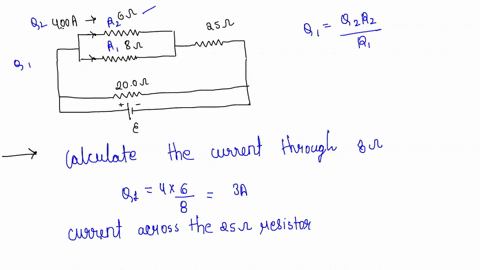 Q2 4.00A → R2 6Ω
25Ω
Q1 = Q2R2 / R1
R1 8Ω
Q1
20.0Ω
+ -
ε
→ Calculate the current through 8Ω
Q1 = 4 × 6 / 8 = 3A
current across the 25Ω resistor